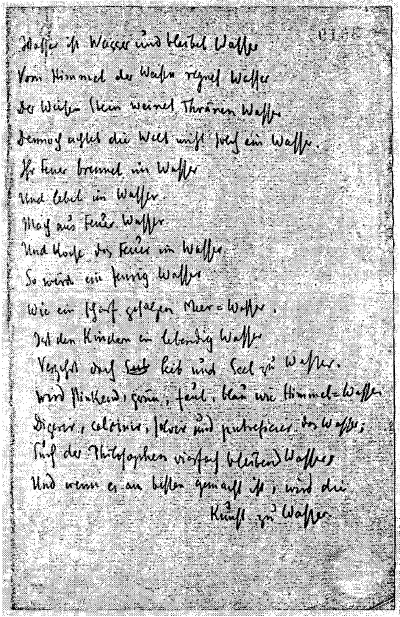 Wasser ist Wasser und bleibet Wasser
Vom Himmel der Weisen regnet Wasser
Der Weisen Stein weinet Thränen Wasser
Dennoch achtet die Welt nicht solch ein Wasser.
Ihr Feuer brennet im Wasser
Und lebet im Wasser.
Mach aus Feuer Wasser
Und Koche das Feuer im Wasser
So wirds ein feurig Wasser
Wie ein scharf gesalzen Meer=Wasser.
Ist den Kindern ein lebendig Wasser
Verzehrt doch Leib und Seel zu Wasser.
Wird stinkend, grün, faul, blau wie Himmel=Wasser
Digerir, calcinir, solvir und putreficier das Wasser;
Such der Philosophen vierfach bleibend Wasser,
Und wenn es am besten gemacht ist, wird die
Kunst zu Wasser.